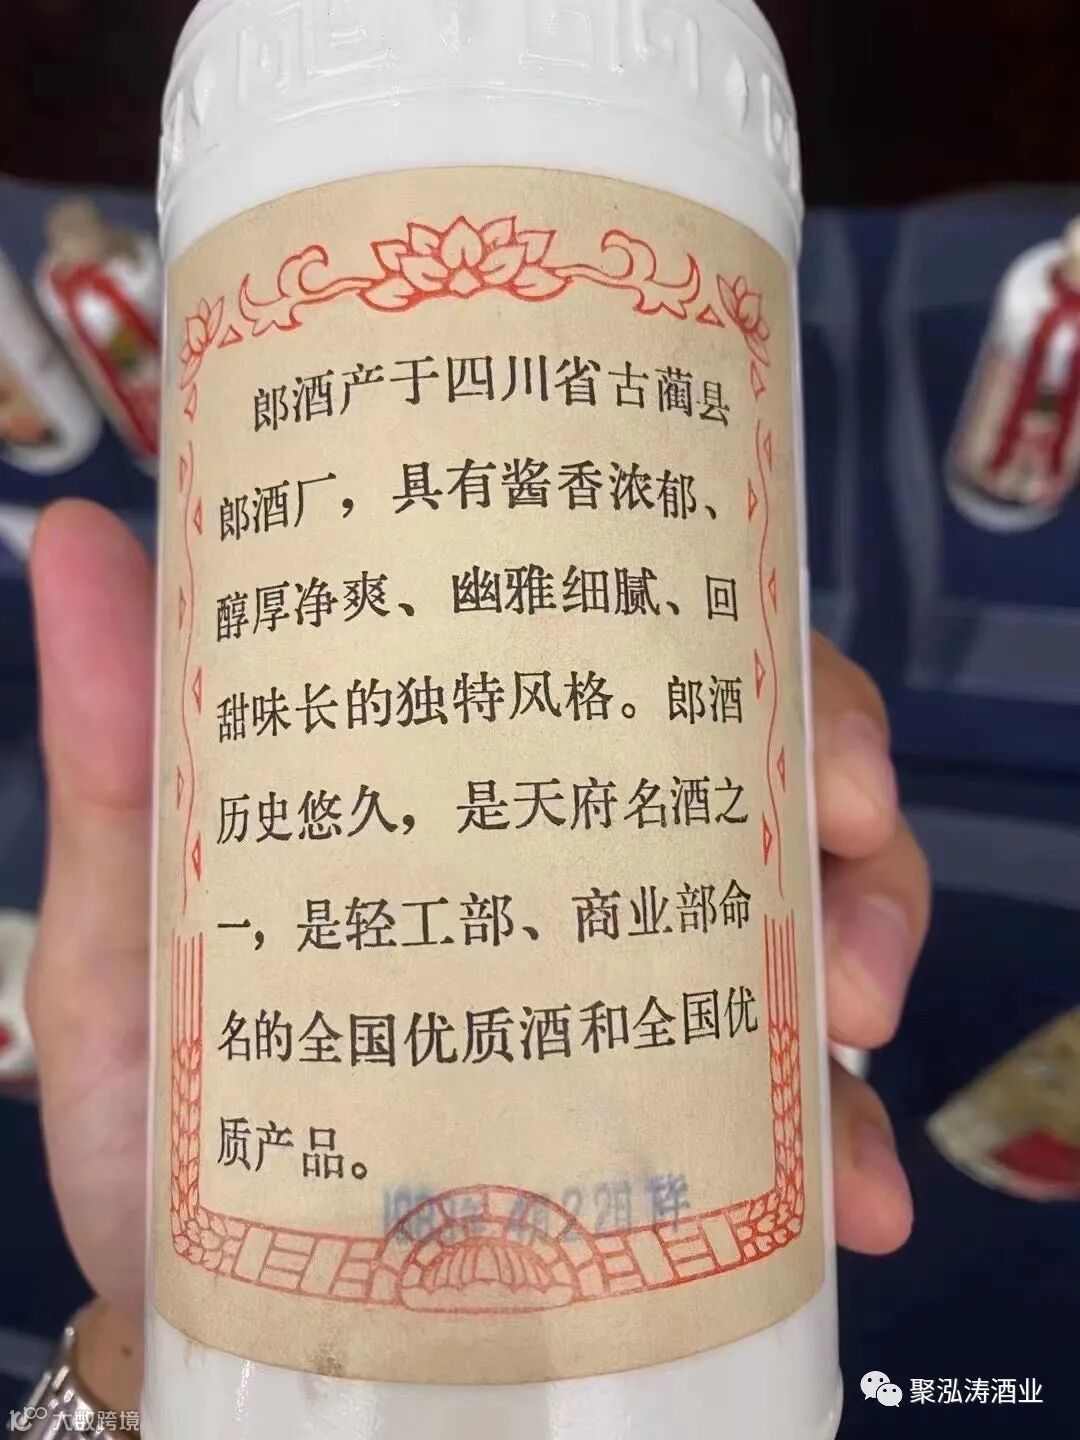 郎酒产于四川省古蔺县
郎酒厂，具有酱香浓郁、
醇厚净爽、幽雅细腻、回
甜味长的独特风格。郎酒
历史悠久，是天府名酒之
一，是轻工部、商业部命
名的全国优质酒和全国优
质产品。
4月22日
聚泓涛酒业
大数跨境